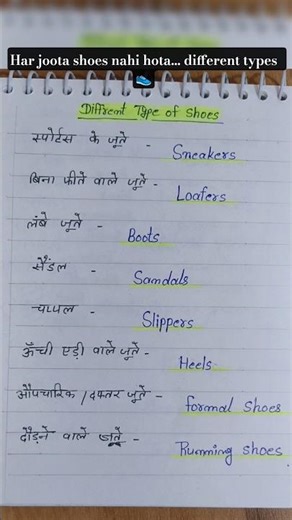 Har joota shoes nahi hota... different types
👟
Diffrent Type of Shoes
स्पोर्टस के जूते - Sneakers
बिना फीते वाले जूते - Loafers
लंबे जूते - Boots
सैंडल - Sandals
चप्पल - Slippers
ऊँची एड़ी वाले जूते - Heels
औपचारिक / दफ्तर जूते - formal shoes
दौड़ने वाले जूते - Running shoes